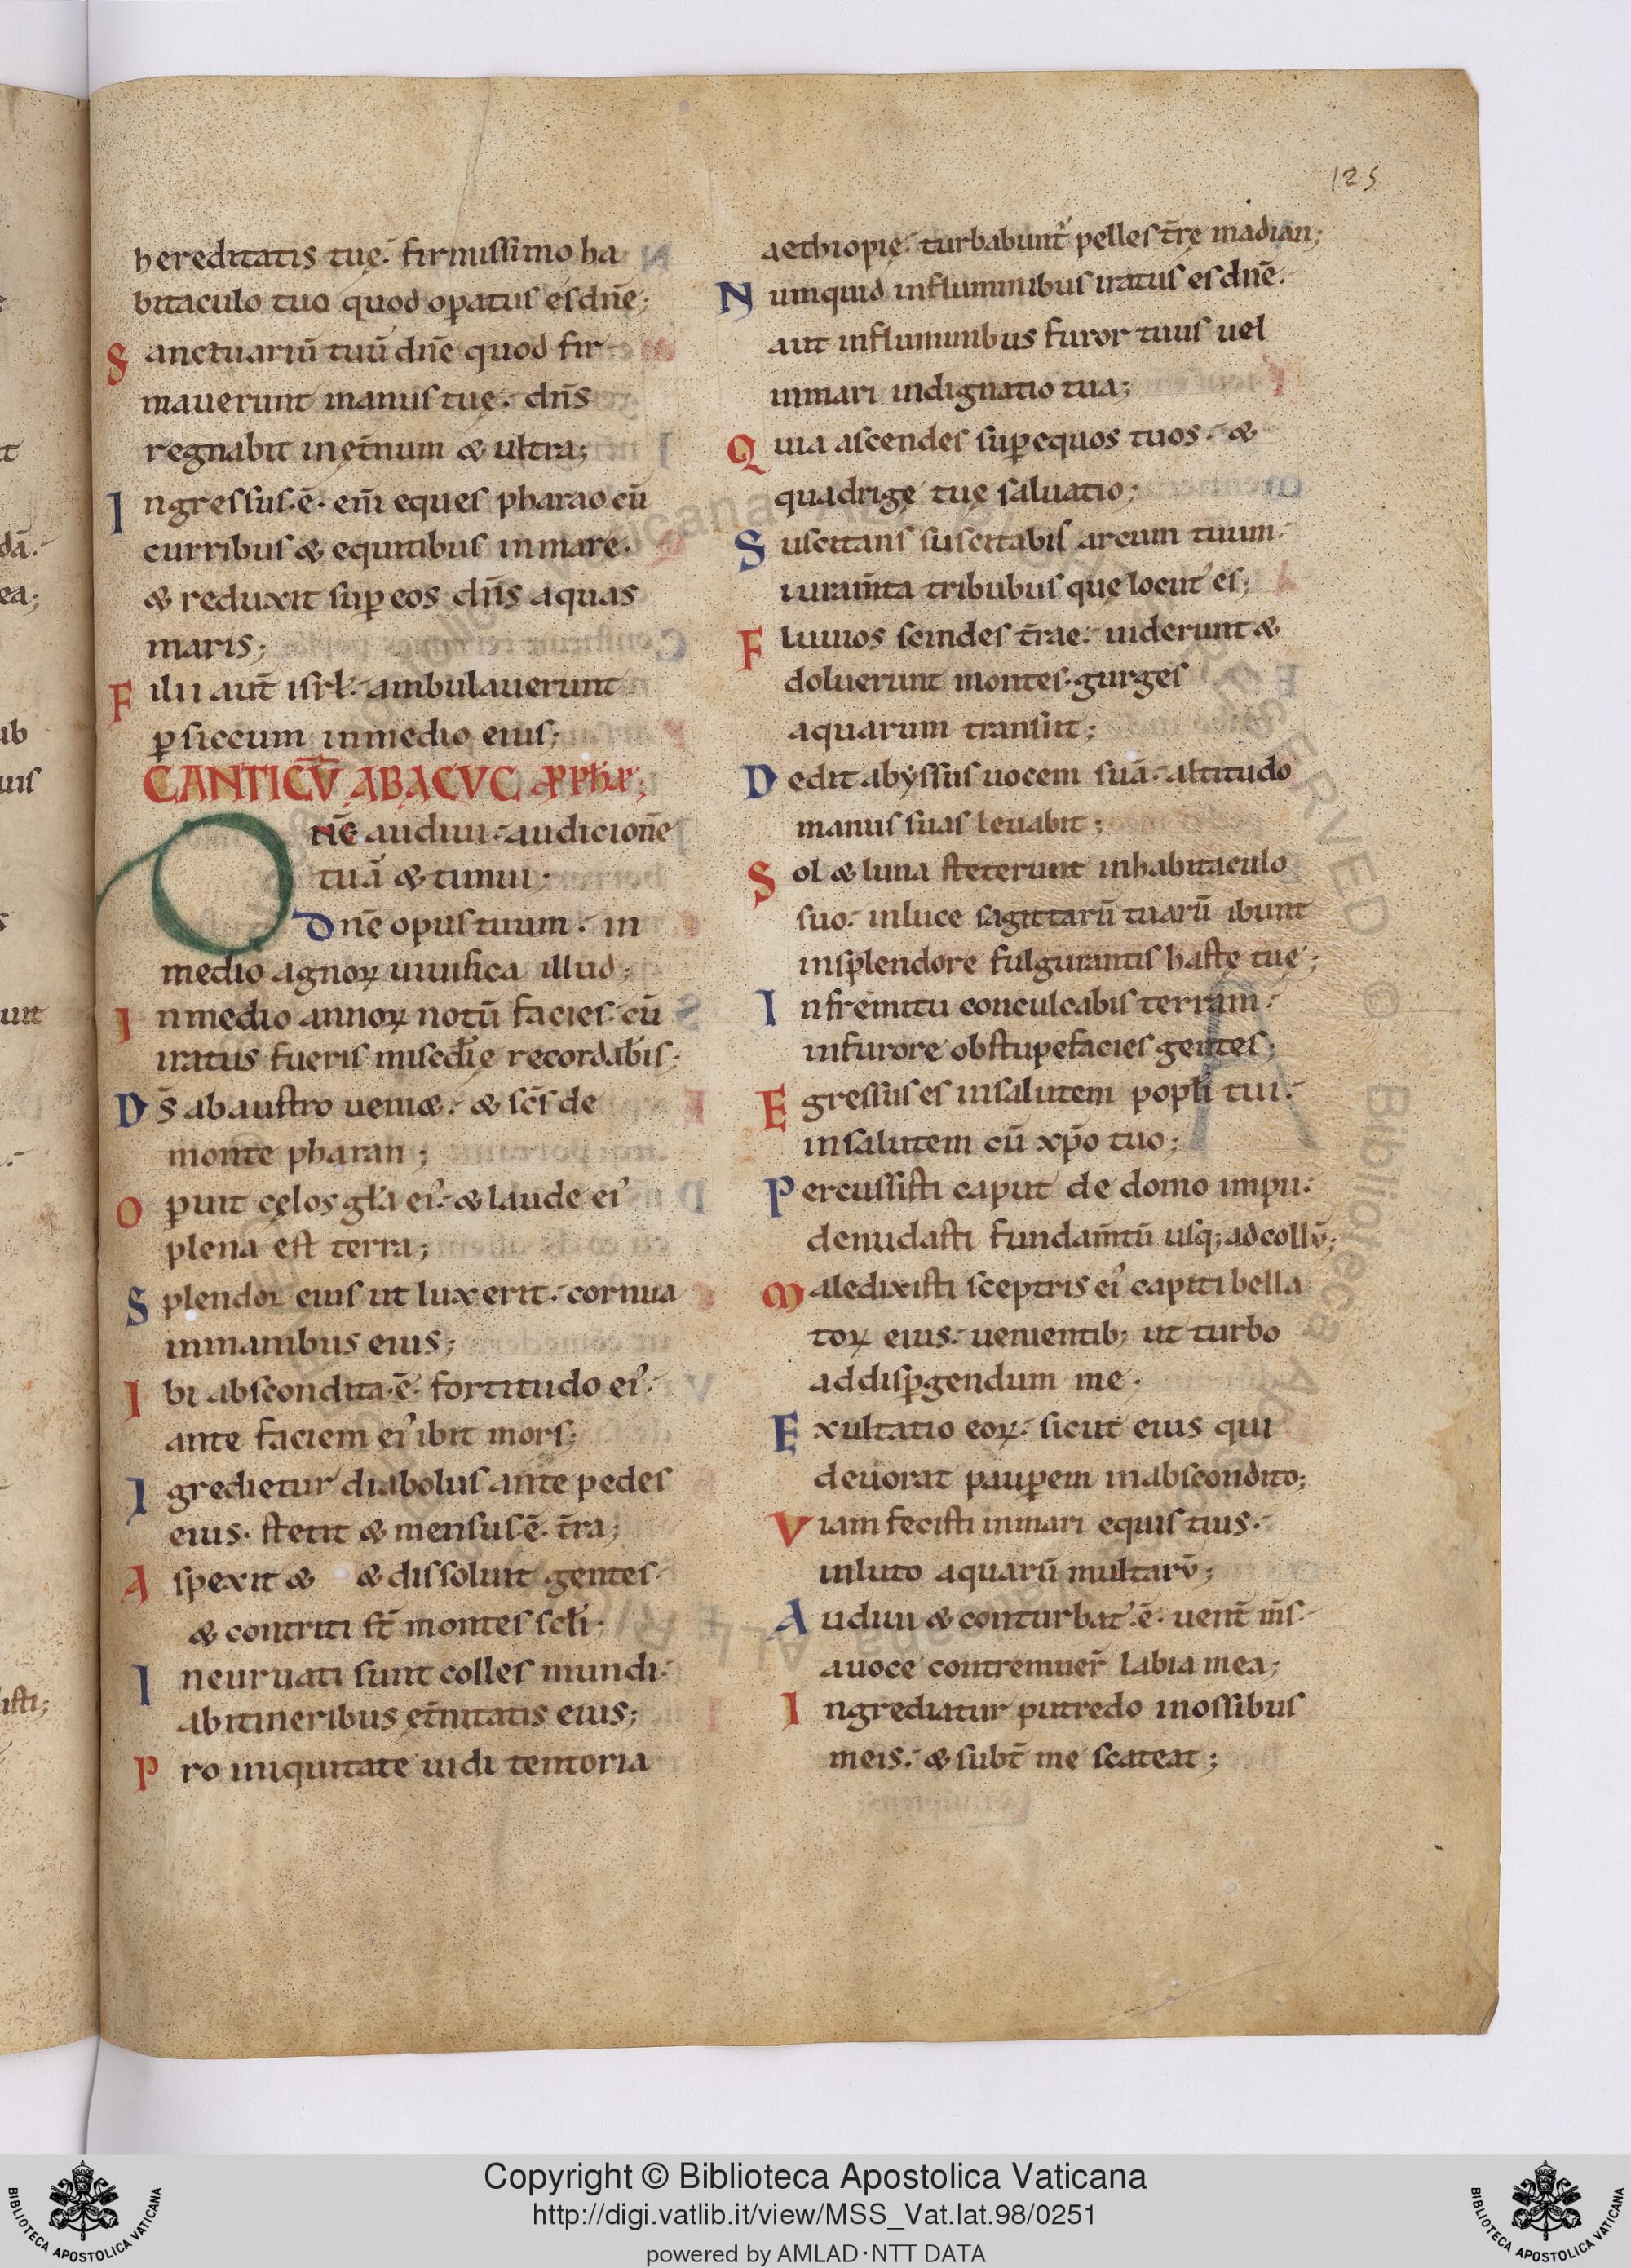 125
hereditatis tuę. firmissimo ha
bitaculo tuo quod opatus es dñe;
Sanctuariū tuū dñe quod fir
mauerunt manus tuę. dñs
regnabit in ęt̄num & ultra;
Ingressus. ē. em̄ eques pharao cū
curribus & equitibus in mare.
& reduxit sup eos dñs aquas
maris;
Filii aut̄ isrł. ambulauerunt
ꝑ siccum in medio eius;
CANTICV̄ ABACVC PPHAE;
Dñe audiui. audicionē
tuā & timui.
Dñe opus tuum. in
medio agnoꝝ uiuifica illud;
In medio annoꝝ notū facies. cū
iratus fueris misedię recordabis.
Ds̄ ab austro ueniæ. & scs̄ de
monte pharan;
Oꝑuit cęlos gła ei᾽. & laude ei᾽
plena est terra;
Splendor eius ut lux erit. cornua
in manibus eius;
Ibi abscondita. ē. fortitudo ei᾽.
ante faciem ei᾽ ibit mors;
Igredietur diabolus ante pedes
eius. stetit & mensus. ē. t̄ra;
Aspexit & & dissoluit gentes.
& contriti st̄ montes scłi.
Incuruati sunt colles mundi.
ab itineribus ęt̄nitatis eius;
Pro iniquitate uidi tentoria
aethiopię. turbabunt᾽ pelles t̄rę madian;
Numquid in fluminibus iratus es dñe.
aut in fluminibus furor tuus uel
in mari indignatio tua;
Quia ascendes sup equos tuos. &
quadrigę tuę saluatio;
Suscitans suscitabis arcum tuum.
iuram̄ta tribubus quę locut᾽ es;
Fluuios scindes t̄rae. uiderunt &
doluerunt montes. gurges
aquarum transiit;
Dedit abyssus uocem suā. altitudo
manus suas leuabit;
Sol & luna steterunt in habitaculo
suo. in luce sagittarū tuarū ibunt
in splendore fulgurantis hastę tuę;
In fremitu conculcabis terram.
in furore obstupefacies gentes;
Egressus es in salutem popłi tui.
in salutem cū xp̄o tuo;
Percussisti caput de domo impii.
denudasti fundam̄tū usq; ad collū;
Maledixisti sceptris ei᾽ capiti bella
toꝝ eius. uenientib; ut turbo
ad dispgendum me.
Exultatio eoꝝ. sicut eius qui
deuorat paupem in abscondito;
Viam fecisti in mari equis tuis.
in luto aquarū multarū;
Audiui & conturbat᾽. ē. uent̄ m̄s.
a uoce contremuer̄ labia mea;
Ingrediatur putredo in ossibus
meis. & subt̄ me scateat;
Copyright © Biblioteca Apostolica Vaticana
http://digi.vatlib.it/view/MSS_Vat.lat.98/0251
powered by AMLAD·NTT DATA
BIBLIOTECA APOSTOLICA VATICANA
BIBLIOTECA APOSTOLICA VATICANA